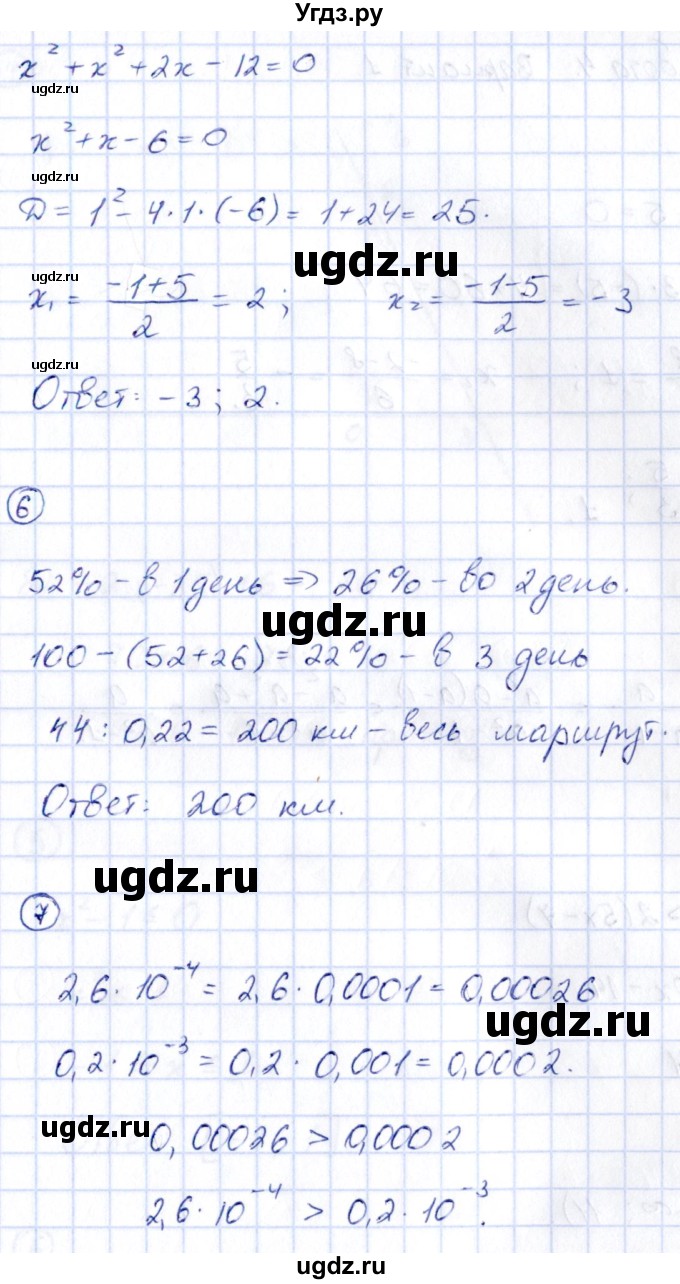 Угдз.ру
x² + x² + 2x - 12 = 0
ugdz.ru
x² + x - 6 = 0
ugdz.ru
D = 1² - 4·1·(-6) = 1 + 24 = 25.
ugdz.ru
ugdz.ru
x₁ = (-1+5)/2 = 2; x₂ = (-1-5)/2 = -3
ugdz.ru
Ответ: -3; 2.
6
52% - в 1 день => 26% - во 2 день.
ugdz.ru
100 - (52+26) = 22% - в 3 день
44 : 0,22 = 200 км - весь маршрут.
Ответ: 200 км.
ugdz.ru
7
2,6·10⁻⁴ = 2,6·0,0001 = 0,00026
ugdz.ru
0,2·10⁻³ = 0,2·0,001 = 0,0002.
ugdz.ru
0,00026 > 0,0002
2,6·10⁻⁴ > 0,2·10⁻³.
ugdz.ru